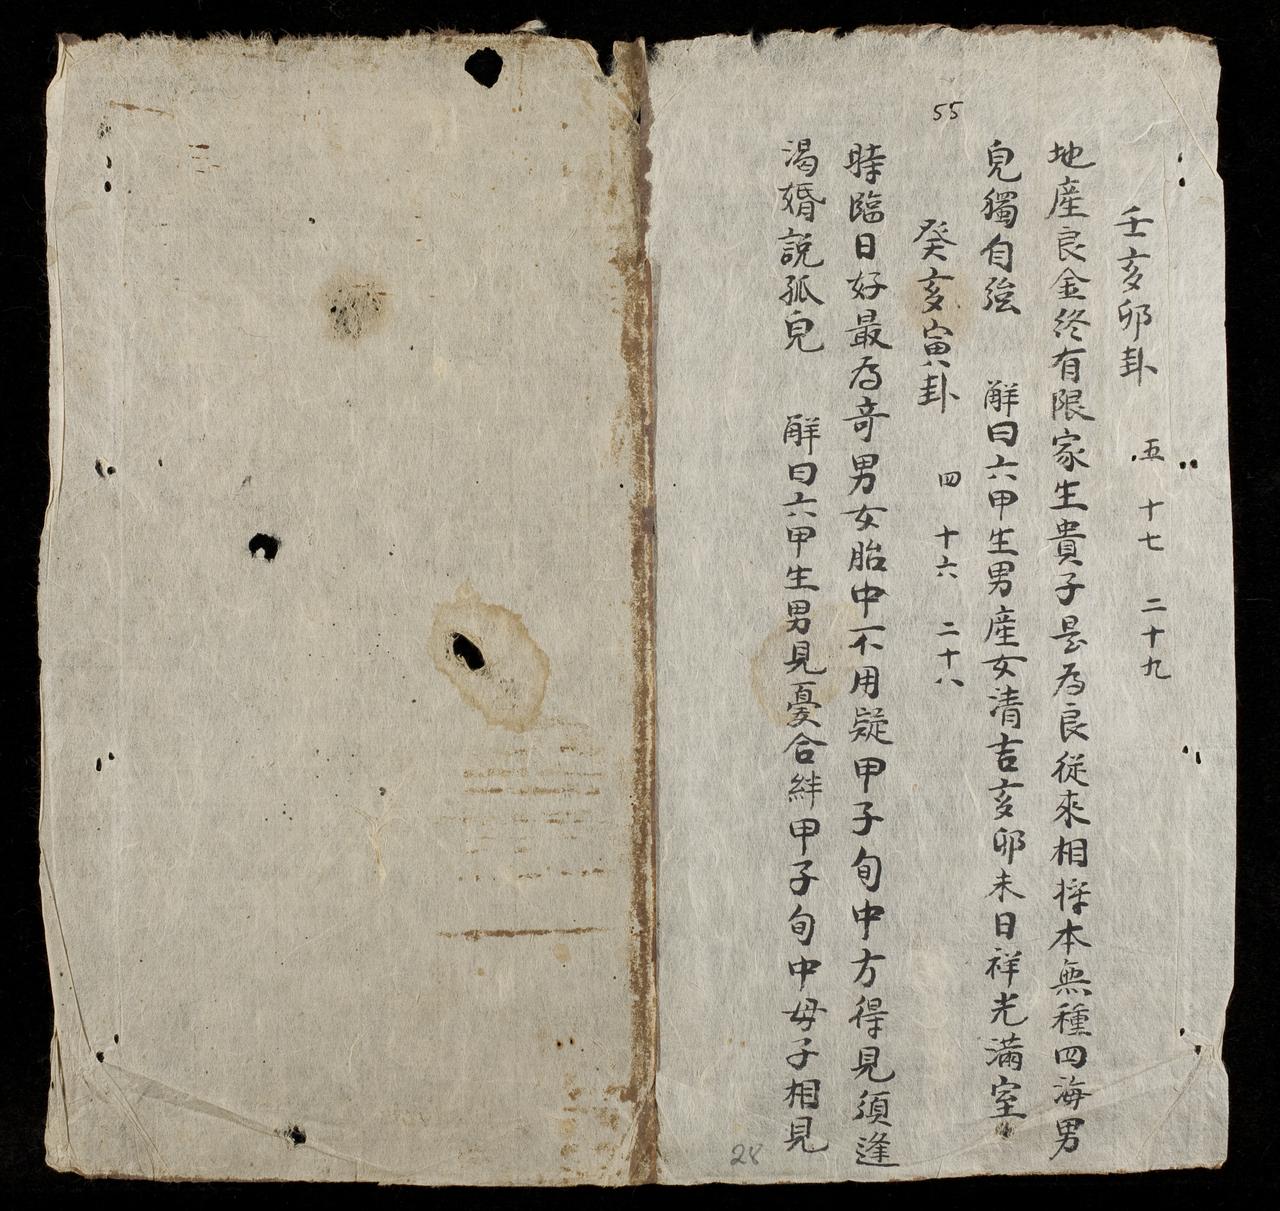 55
壬亥卯卦 五 十七 二十九
地産良金終有限家生貴子是為良從來相㨂本無種四海男
兒獨自強 觧曰六甲生男産女清吉亥卯未日祥光滿室
癸亥寅卦 四 十六 二十八
時臨日好最為竒男女胎中不用疑甲子旬中方得見須逢
渴婚説孤兒 觧曰六甲生男見憂合絆甲子旬中母子相見
28